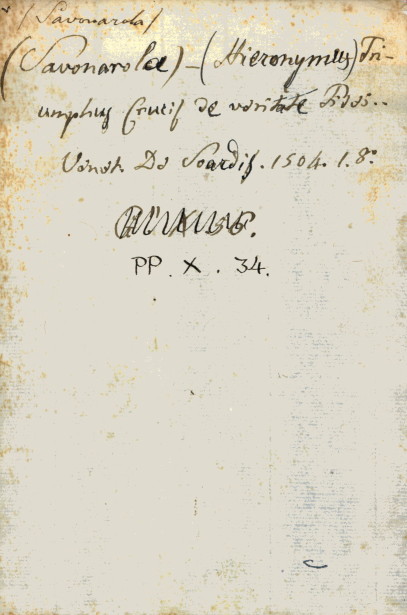 (Savonarola)
(Savonarola)-(Hieronymus) Tri-
umphus Crucis de veritate Fidei..
Venet. De Soardis. 1504. 1. 8º
PP. X. 34.